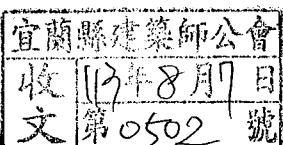 宜蘭縣建築師公會
收文
113年8月7日
第0502號